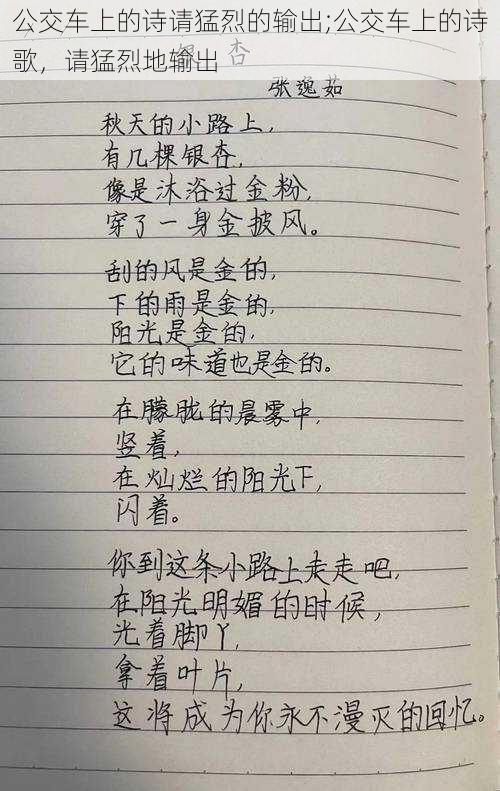 公交车上的诗请猛烈的输出;公交车上的诗
歌，请猛烈地输出
银杏
张逸茹
秋天的小路上,
有几棵银杏,
像是沐浴过金粉,
穿了一身金披风。
刮的风是金的,
下的雨是金的,
阳光是金的,
它的味道也是金的。
在朦胧的晨雾中,
竖着,
在灿烂的阳光下,
闪着。
你到这条小路上走走吧,
在阳光明媚的时候,
光着脚丫,
拿着叶片,
这将成为你永不漫灭的回忆。